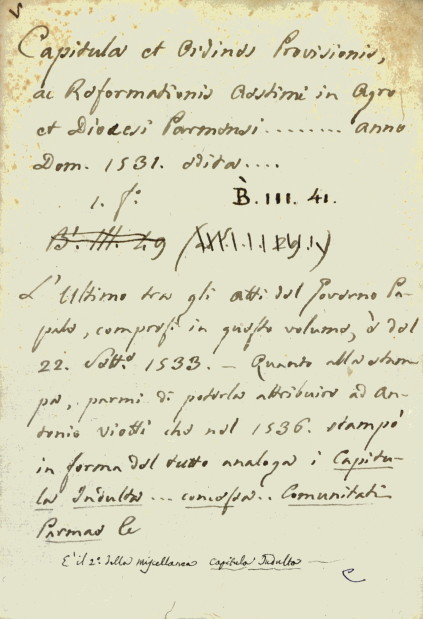 Capitula et Ordines Provisionis,
ac Reformationis Aestimi in Agro
et Diocesi Parmensi ........ anno
Dom. 1531. edita....
1. f.o B. III. 41.
B. III. 29
L'Ultimo tra gli atti del Governo Pa-
pale, compresi in questo volume, è del
22. Sett.e 1533. — Quanto alla stam-
pa, parmi di poterla attribuire ad An-
tonio Viotti che nel 1536. stampò
in forma del tutto analoga i Capitu-
la Indulta ... concessa .. Comunitati
Parmae &c
È il 2.o della miscellanea Capitula Indulta —